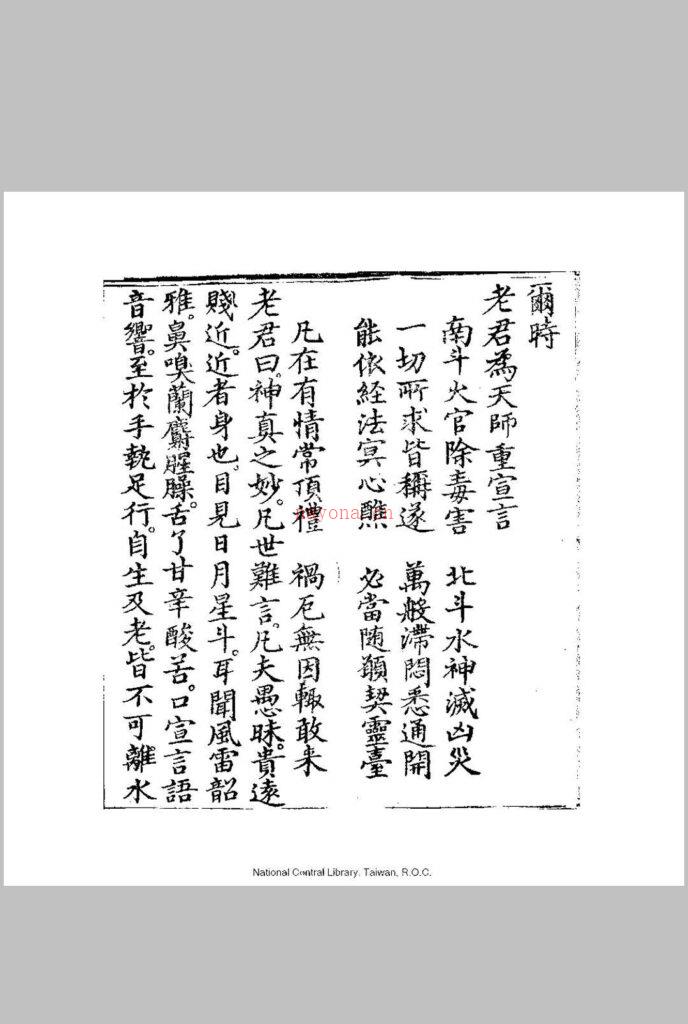 爾時
老君為天師重宣言
南斗火官除毒害　北斗水神滅凶災
一切所求皆稱遂　萬般滯悶悉通開
能依經法冥心醮　必當随願契靈臺
凡在有情常頂禮　禍厄無因輙敢来
老君曰。神真之妙。凡世難言。凡夫愚昧。貴遠
賤近。近者身也。目見日月星斗。耳聞風雷韶
雅。鼻嗅蘭麝腥臊。舌了甘辛酸苦。口宣言語
音響。至於手執足行。自生及老。皆不可離水
National Central Library, Taiwan, R.O.C.